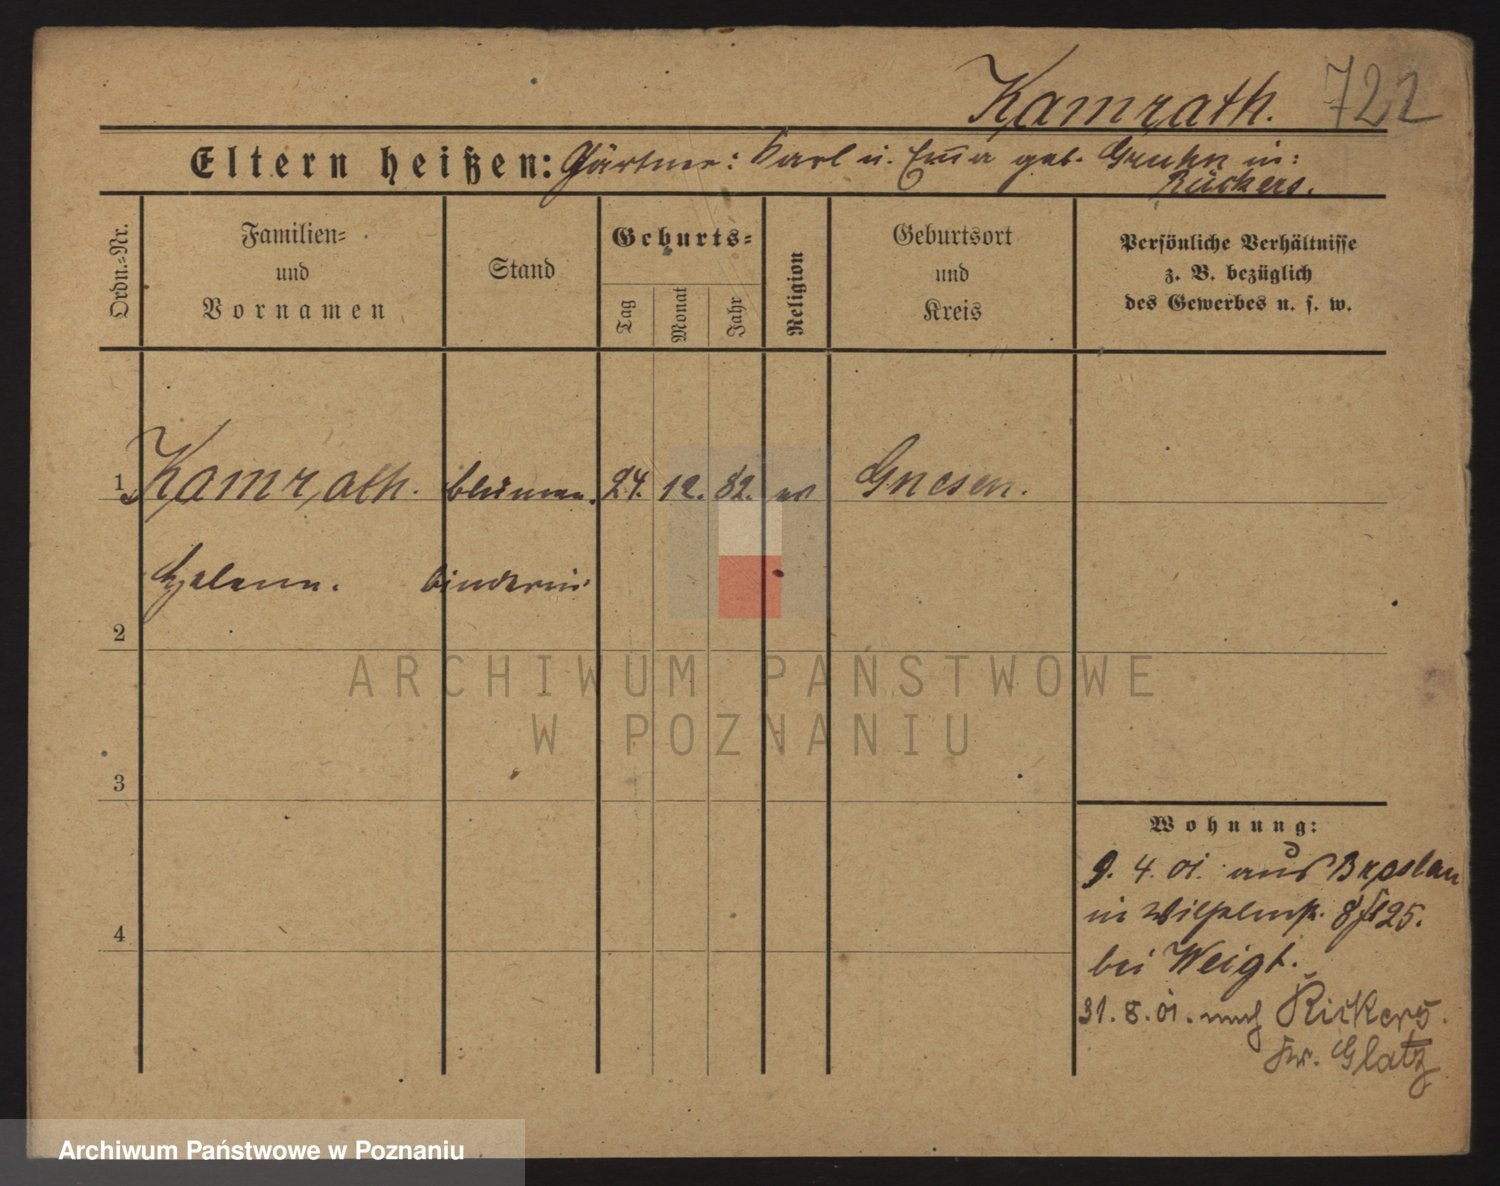 Kamrath. 722
Eltern heißen: Gärtner: Karl u. Em̄a geb. Gruhn in:
Rückers.
Ordn.-Nr.
Familien-
und
Vornamen
Stand
Geburts-
Tag
Monat
Jahr
Religion
Geburtsort
und
Kreis
Persönliche Verhältnisse
z. B. bezüglich
des Gewerbes u. s. w.
1 Kamrath. Blumen- 24. 12. 82. ev Gnesen.
Helene. binderin
2
ARCHIWUM PAŃSTWOWE
W POZNANIU
3
Wohnung:
9. 4. 01. aus Breslau
in Wilhelmstr. 25.
4
bei Weigt.
31. 8. 01. nach Rückers.
Kr. Glatz
Archiwum Państwowe w Poznaniu